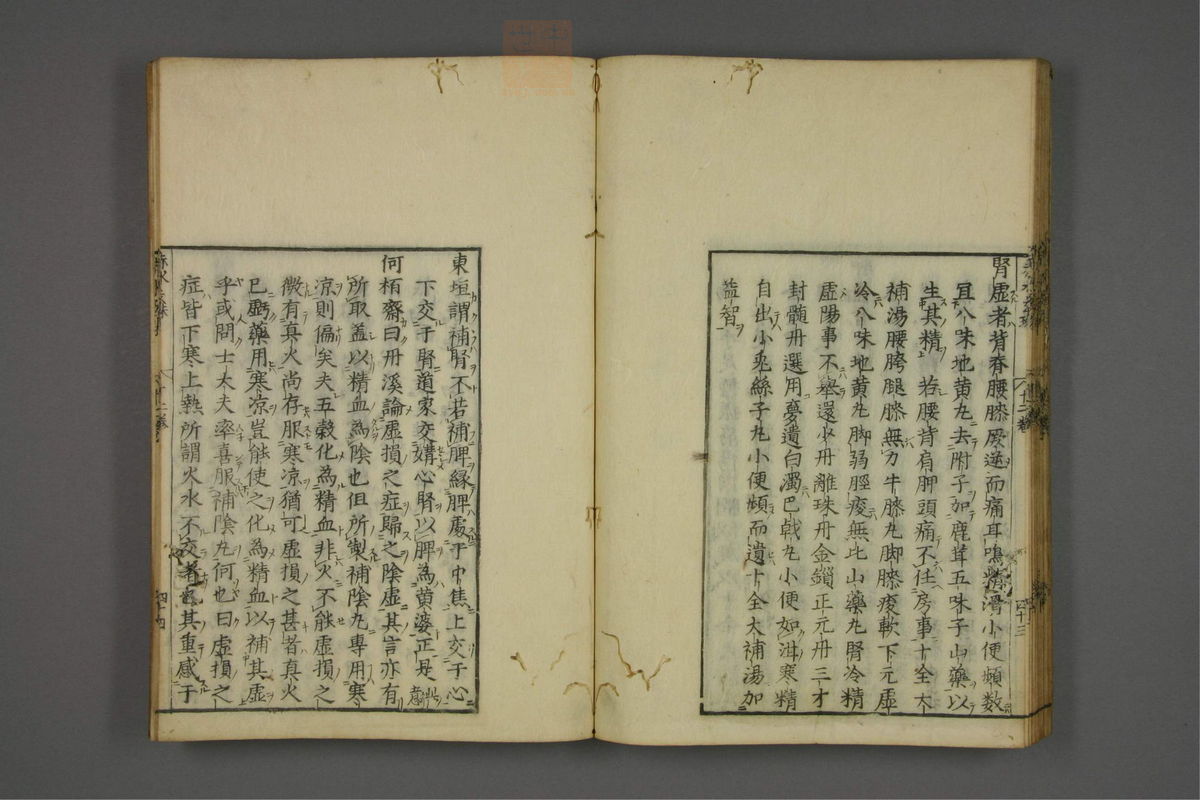 腎虛者背脊腰膝厥逆而痛耳鳴精滑小便頻数
宜八味地黄丸去附子加鹿茸五味子山藥以
生其精　若腰背肩胛頭痛不任房事十全大
補湯腰胯腿膝無力牛膝丸脚膝痠軟下元虛
冷八味地黄丸脚弱脛痠無比山藥丸腎冷精
虛陽事不舉還少丹離珠丹金鎖正元丹三才
封髓丹選用夢遺白濁巴戟丸小便如泔寒精
自出小兎絲子丸小便頻而遺十全大補湯加
益智
東垣謂補腎不若補脾縁脾處于中焦上交于心
下交于腎道家交媾心腎以脾為黄婆正是此意
何栢齋曰丹溪論虛損之症歸之陰虛其言亦有
所取盖以精血為陰也但所製補陰丸專用寒
凉則偏矣夫五穀化為精血非火不能虛損之
微有真火尚存服寒凉猶可虛損之甚者真火
已虧藥用寒凉豈能使之化為精血以補其虛
乎或問士大夫率喜服補陰丸何也曰虛損之
症皆下寒上熱所謂火水不交者也其重感于
四十四
四十三